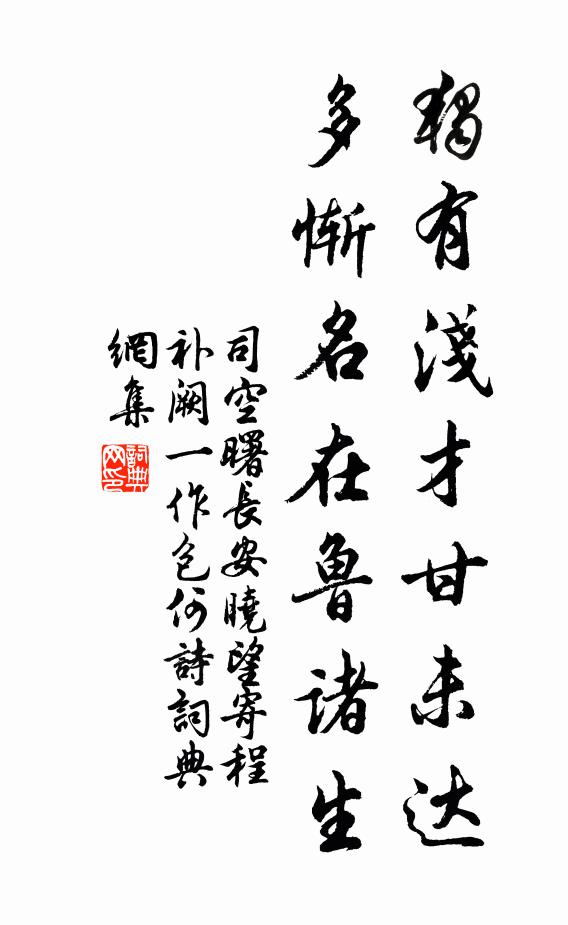 獨有淺才甘未达
多慚名在魯諸生
司空曙長安曉望寄程
补阙一作包何詩詞典
網集
詞典网印